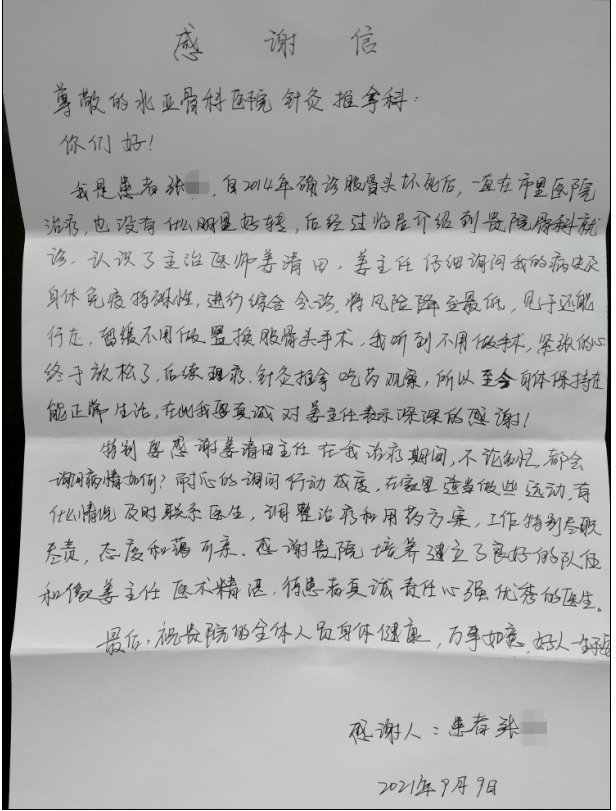 感谢信
尊敬的水亚骨科医院针灸推拿科：
你们好！
我是患者张，自2014年确诊股骨头坏死后，一直在市里医院
治疗，也没有什么明显好转，后经过临居介绍到贵院骨科就
诊，认识了主治医师姜清田，姜主任仔细询问我的病史及
身体免疫特殊性，进行综合会诊，将风险降至最低，见于还能
行走，暂缓不用做置换股骨头手术，我听到不用做手术，紧张的心
终于放松了，后续理疗、针灸推拿吃药观察，所以至今身体保持在
能正常生活，在此我要真诚对姜主任表示深深的感谢！
特别要感谢姜清田主任在我治疗期间，不论多忙，都会
询问病情如何？耐心的询问行动感度，在家里适当做些运动，有
什么情况及时联系医生，调整治疗和用药方案，工作特别尽职
尽责，态度和蔼可亲。感谢贵院培养建立了良好的队伍
和像姜主任医术精湛，待患者真诚责任心强优秀的医生。
最后，祝贵院的全体人员身体健康，万事如意，好人一生平安
感谢人：患者张
2021年9月9日